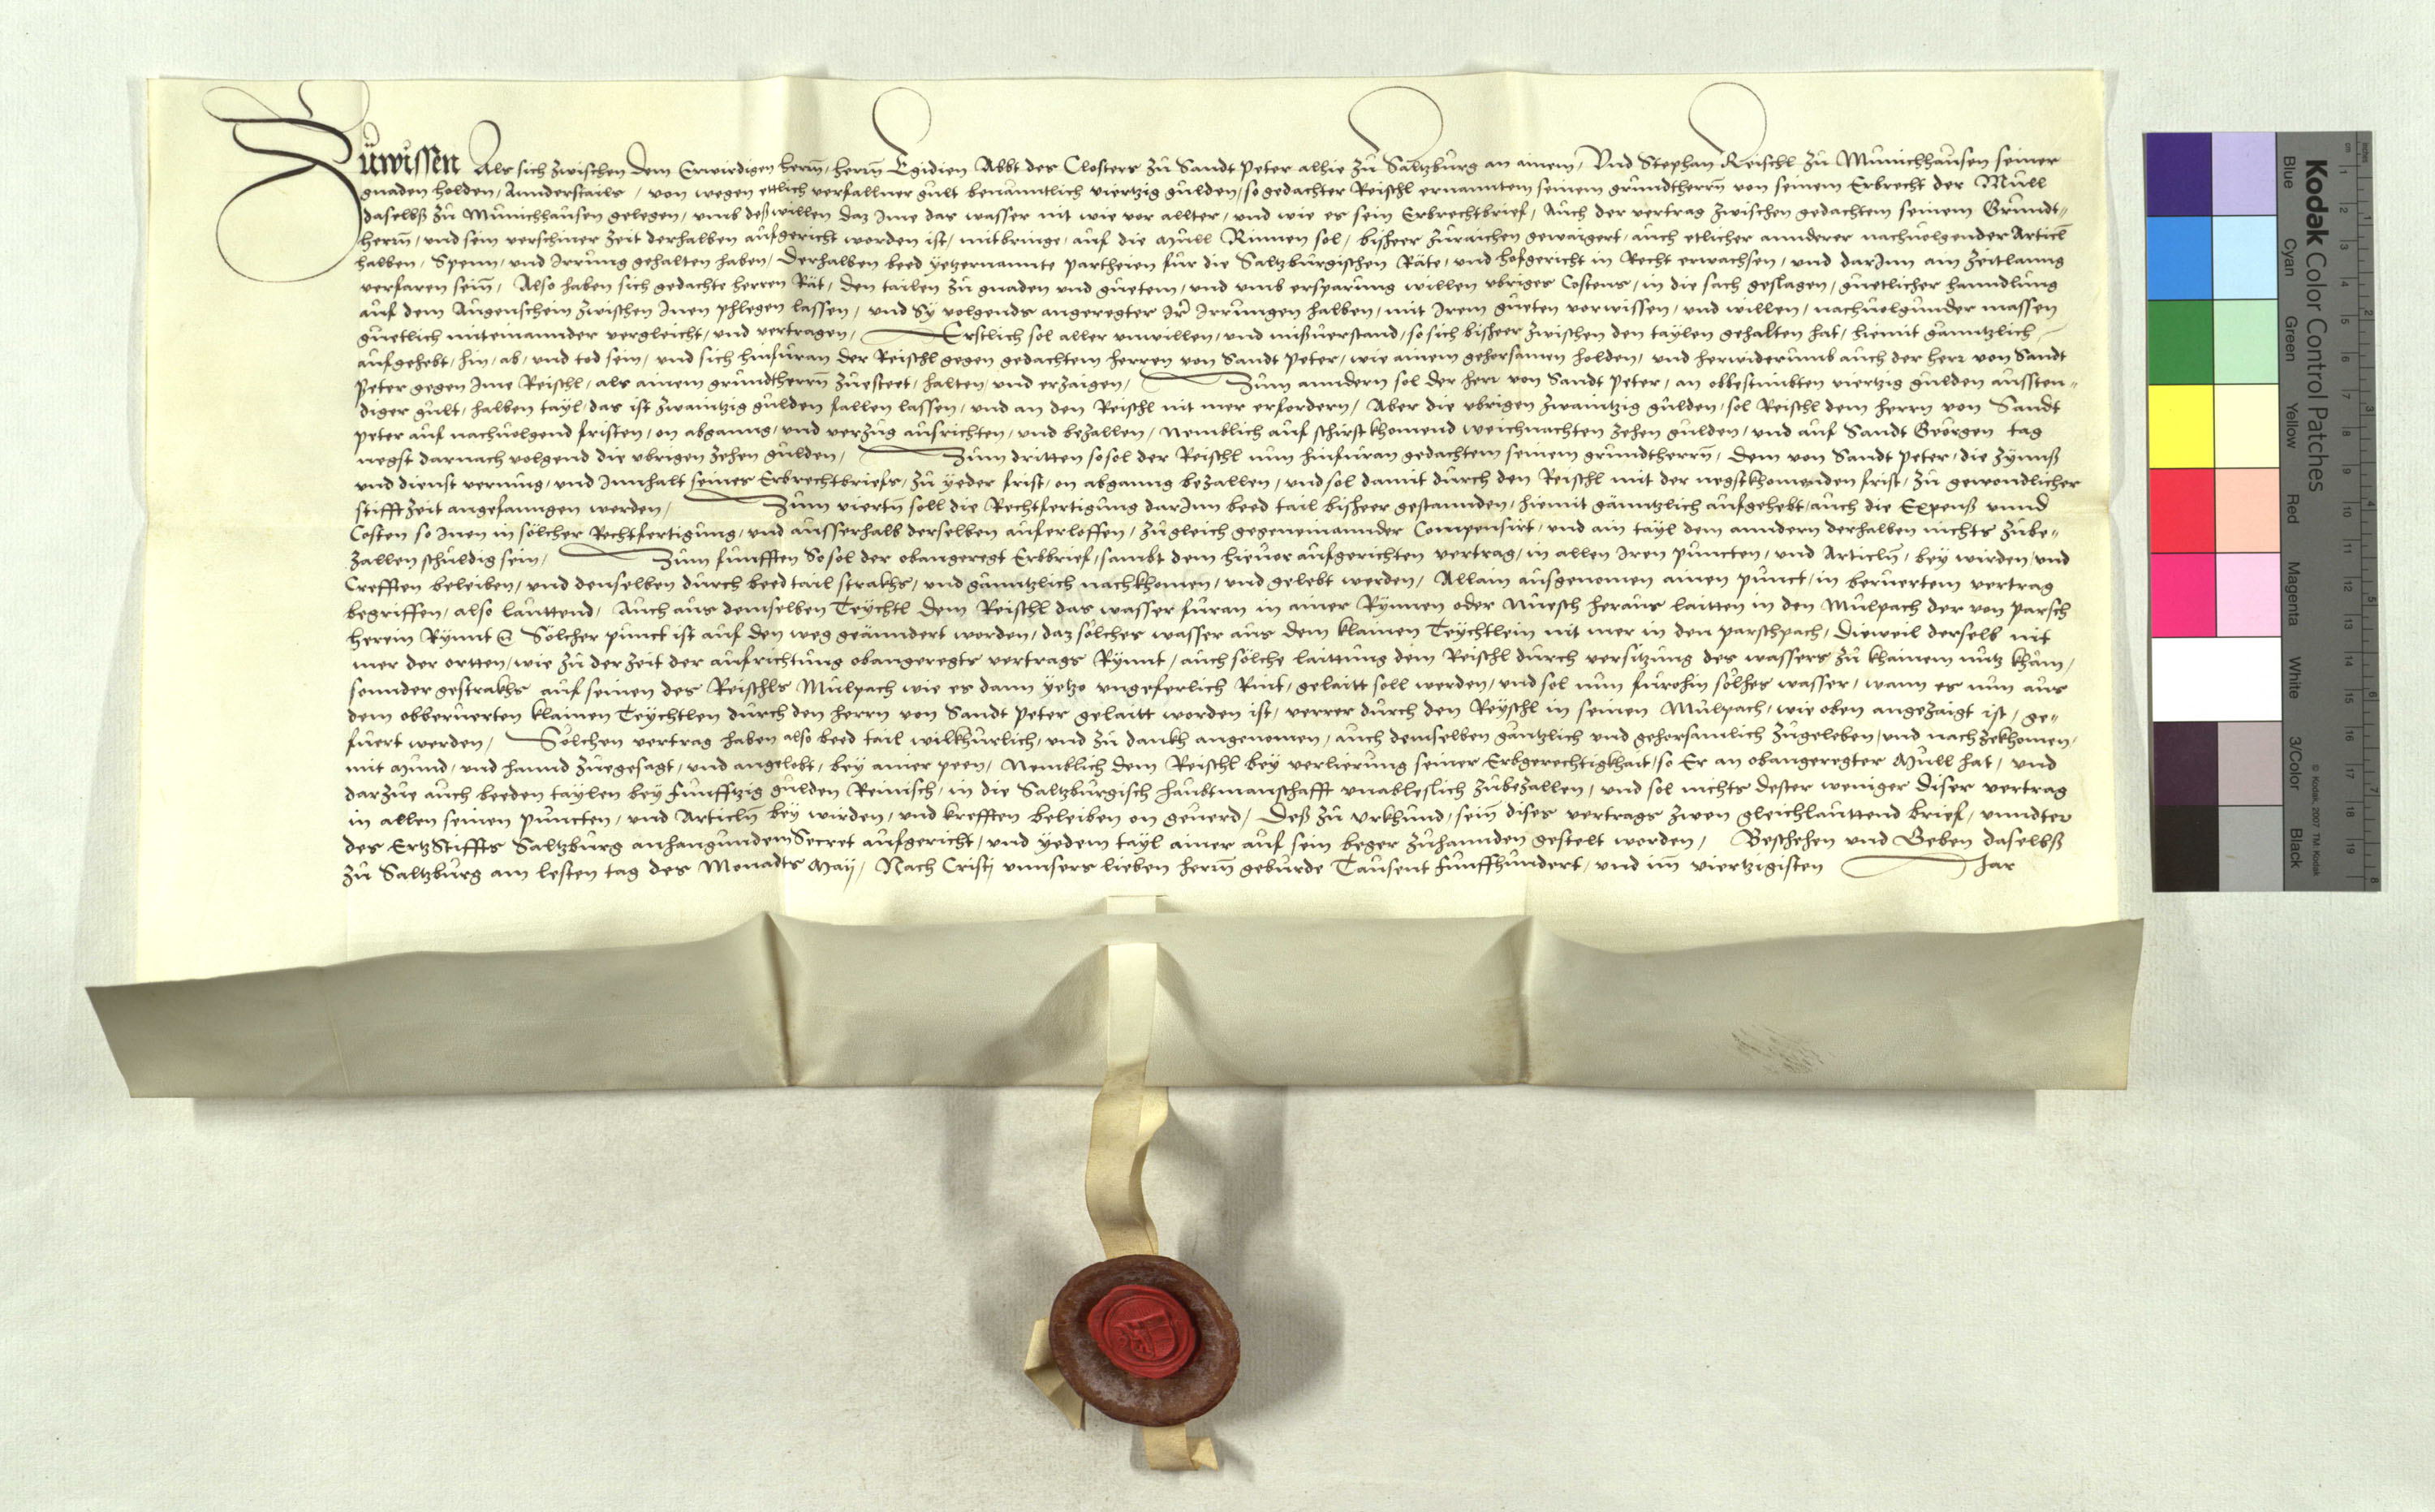 Zuwissen Als sich zwischen dem Erwirdigen herrn, herrn Egidien Abbt des Closters zů Sandt Peter alhie zů Saltzburg an ainem, Vnd Stephan Reischl zů Munichhausen seiner
gnaden holden, Annderstails, von wegen ettlich verfallner gült benanntlich viertzig gulden, so gedachter Reischl ernanntem seinem grundtherrn von seinem Erbrecht der Müll
daselbß zů Munichhausen gelegen, vmb deß willen daz Ime das wasser nit wie vor allter, vnd wie es sein Erbrechtbrief, Auch der vertrag zwischen gedachtem seinem Grundt-
herrn, vnd sein verschiner zeit derhalben aufgericht worden ist, mitbringe, auf die Müll Rinnen sol, bisheer zůraichen gewaigert, auch etlicher annderer nachuolgender Articl
halben, Spenn, vnd Irrung gehalten haben, Derhalben beed yetzernannte partheien für die Saltzburgischen Räte, vnd hofgericht in Recht erwachsen, vnd darInn ain zeitlanng
verfaren sein, Also haben sich gedachte herren Rät, den tailen zů gnaden vnd guetem, vnd vmb ersparung willen vbriges Costens, in die sach geslagen, guetlicher hanndlung
auf dem Augenschein zwischen Inen phlegen lassen, vnd Sy volgends angeregter Ir Irrungen halben, mit Irem gueten vorwissen, vnd willen, nachuolgunder massen
guetlich miteinannder vergleicht, vnd vertragen, Erstlich sol aller vnwillen, vnd mißuerstand, so sich bisheer zwischen den taylen gehalten hat, hiemit ganntzlich
aufgehebt, hin, ab, vnd tod sein, vnd sich hinfuran der Reischl gegen gedachtem herren von Sandt Peter, wie ainem gehorsamen holden, vnd herwiderumb auch der herr von Sandt
Peter gegen Ime Reischl, als ainem grundtherrn zuesteet, halten vnd erzaigen, Zum anndern sol der herr von Sandt Peter, an obbestimbten viertzig gulden aussten-
diger gult, halben tayl, das ist zwaintzig gulden fallen lassen, vnd an den Reischl nit mer erfordern, Aber die vbrigen zwaintzig gulden, sol Reischl dem herrn von Sandt
peter auf nachuolgend fristen, on abganng, vnd verzug ausrichten, vnd bezallen, Nemblich auf schirstkhomend weichnachten zehen gulden, vnd auf Sandt Georgen tag
negst darnach volgend die vbrigen zehen gulden, Zum dritten so sol der Reischl nun hinfuran gedachtem seinem grundtherrn, dem von Sandt Peter, die zynnß
vnd dienst vermug, vnd Innhalt seines Erbrechtbriefs, zů yeder frist, on abganng bezallen, vnd sol damit durch den Reischl mit der negstkhomenden frist, zů gewondlicher
stifftzeit angefanngen werden, Zum viertn soll die Rechtfertigung darInn beed tail bisheer gestannden, hiemit ganntzlich aufgehebt, auch die Expenß vnnd
Costen so Inen in solcher Rechtfertigung, vnd ausserhalb derselben auferloffen, zugleich gegeneinannder Compensirt, vnd ain tayl dem anndern derhalben nichts zube-
zallen schuldig sein, Zum funfften So sol der obangeregt Erbbrief, sambt dem hieuor aufgerichten vertrag, in allen Iren puncten, vnd Articln, bey wirden, vnd
Crefften beleiben, vnd denselben durch beed tail strakhs, vnd ganntzlich nachkhomen, vnd gelebt werden, Allain ausgenomen ainen punct, in beruertem vertrag
begriffen, also lauttend, Auch aus demselben Teychtl dem Reischl das wasser furan in ainer Rynnen oder Nuesch heraus laitten in den Mulpach der von parsch
herein Rynnt &c Solcher punct ist auf den weg geänndert worden, daz solches wasser aus dem klainen Teychtlein nit mer in den parschpach, Dieweil derselb nit
mer der ortten, wie zů der zeit der aufrichtung obangeregts vertrags Rynnt, auch solche laittung dem Reischl durch versitzung des wassers zů khainem nutz kham,
sonnder gestrakhs auf seinen des Reischls Mulpach wie es dann yetzo vngeferlich Rint, gelaitt soll werden, vnd sol nun furohin solhes wasser, wann es nun aus
dem obberuerten klainen Teychtlen durch den herrn von Sandt Peter gelaitt worden ist, verrer durch den Reyschl in seinen Mulpach, wie oben angezaigt ist, ge-
fuert werden, Solchen vertrag haben also beed tail wilkhurlich, vnd zů dankh angenomen, auch demselben gantzlich vnd gehorsamlich zugeleben, vnd nachzekhomen,
mit mund, vnd hannd zuegesagt, vnd angelobt, bey ainer peen, Nemblich dem Reischl bey verlierung seiner Erbgerechtigkhait, so Er an obangeregter Mull hat, vnd
darzue auch beeden taylen bey funfftzig gulden Reinisch, in die Saltzburgisch haubtmanschafft vnableslich zubezallen, vnd sol nichts dester weniger diser vertrag
in allen seinen puncten, vnd Articln bey wirden, vnd krefften beleiben on geuerd, Deß zů vrkhund, sein dises vertrags zwen gleichlauttend brief, vnndter
des Ertzstiffts Saltzburg anhangundem Secret aufgericht, vnd yedem tayl ainer auf sein beger zuhannden gestelt worden, Beschehen vnd Geben daselbß
zů Saltzburg am lesten tag des Monadts May, Nach Cristj vnnsers lieben herrn geburde Tausent funffhundert, vnd im viertzigisten Jar
Kodak Color Control Patches
Blue Cyan Green Yellow Red Magenta White 3/Color Black
© Kodak, 2007 TM: Kodak
cm 1 2 3 4 5 6 7 8 9 10 11 12 13 14 15 16 17 18 19
inches 1 2 3 4 5 6 7 8